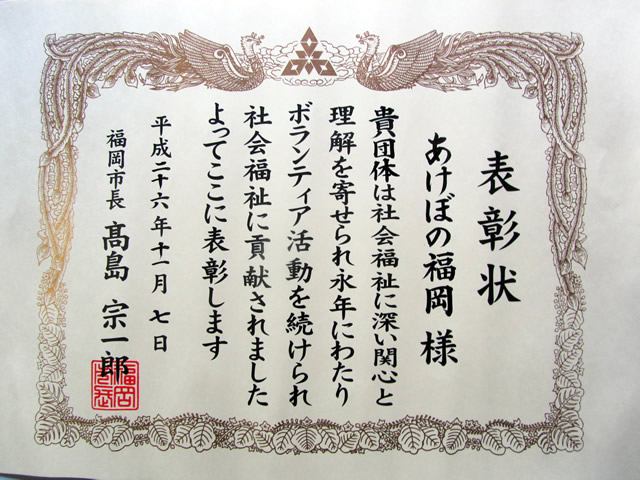 表彰状
あけぼの福岡 様
貴団体は社会福祉に深い関心と
理解を寄せられ永年にわたり
ボランティア活動を続けられ
社会福祉に貢献されました
よってここに表彰します
平成二十六年十一月七日
福岡市長 髙島 宗一郎